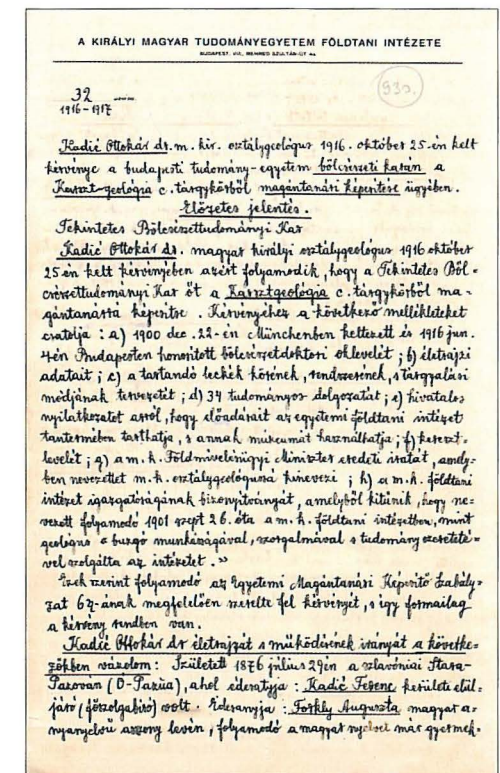 A KIRÁLYI MAGYAR TUDOMÁNYEGYETEM FÖLDTANI INTÉZETE
BUDAPEST, VIII., MEHMED SZULTÁN-ÚT
930.
32
1916-1917
Kadić Ottokár dr. m. kir. osztálygeológus 1916. október 25-én kelt
kérvénye a budapesti tudomány-egyetem bölcsészeti karán a
Karszt-geológia c. tárgykörből magántanári képesítése ügyében.
Előzetes jelentés.
Tekintetes Bölcsészettudományi Kar
Kadić Ottokár dr. magyar királyi osztálygeológus 1916 október
25-én kelt kérvényében azért folyamodik, hogy a Tekintetes Böl-
csészettudományi Kar őt a Karsztgeológia c. tárgykörből ma-
gántanárrá képesítse. Kérvényéhez a következő mellékleteket
csatolja: a) 1900 dec. 22-én Münchenben keltezett és 1916 jun.
4én Budapesten honosított bölcsészetdoktori oklevelét; b) életrajzi
adatait; c) a tartandó leckék körének, rendszerének, s tárgyalási
módjának tervezetét; d) 34 tudományos dolgozatát; e) hivatalos
nyilatkozatot arról, hogy előadásait az egyetemi földtani intézet
tantermében tarthatja, s annak muzeumát használhatja; f) kereszt-
levelét; g) a m. k. Földmívelésügyi Miniszter eredeti iratát, amely-
ben nevezettet m. k. osztálygeológussá kinevezi; h) a m. k. földtani
intézet igazgatóságának bizonyítványát, amelyből kitűnik, hogy ne-
vezett folyamodó 1901 szept 26. óta a m. k. földtani intézetben, mint
geologus "buzgó munkásságával, szorgalmával s tudomány szereteté-
vel szolgálta az intézetet."
Ezek szerint folyamodó az Egyetemi Magántanári Képesítő Szabály-
zat 6§-ának megfelelően szerelte fel kérvényét, s így formailag
a kérvény rendben van.
Kadić Ottokár dr életrajzát s működésének irányát a követke-
zőkben vázolom: Született 1876 július 29én a szlavóniai Stara-
Pazován (Ó-Pazua), ahol édesatyja: Kadić Ferenc kerületi elül-
járó (főszolgabíró) volt. Édesanyja: Forkly Auguszta magyar a-
nyanyelvű asszony lévén, folyamodó a magyar nyelvet már gyermek-